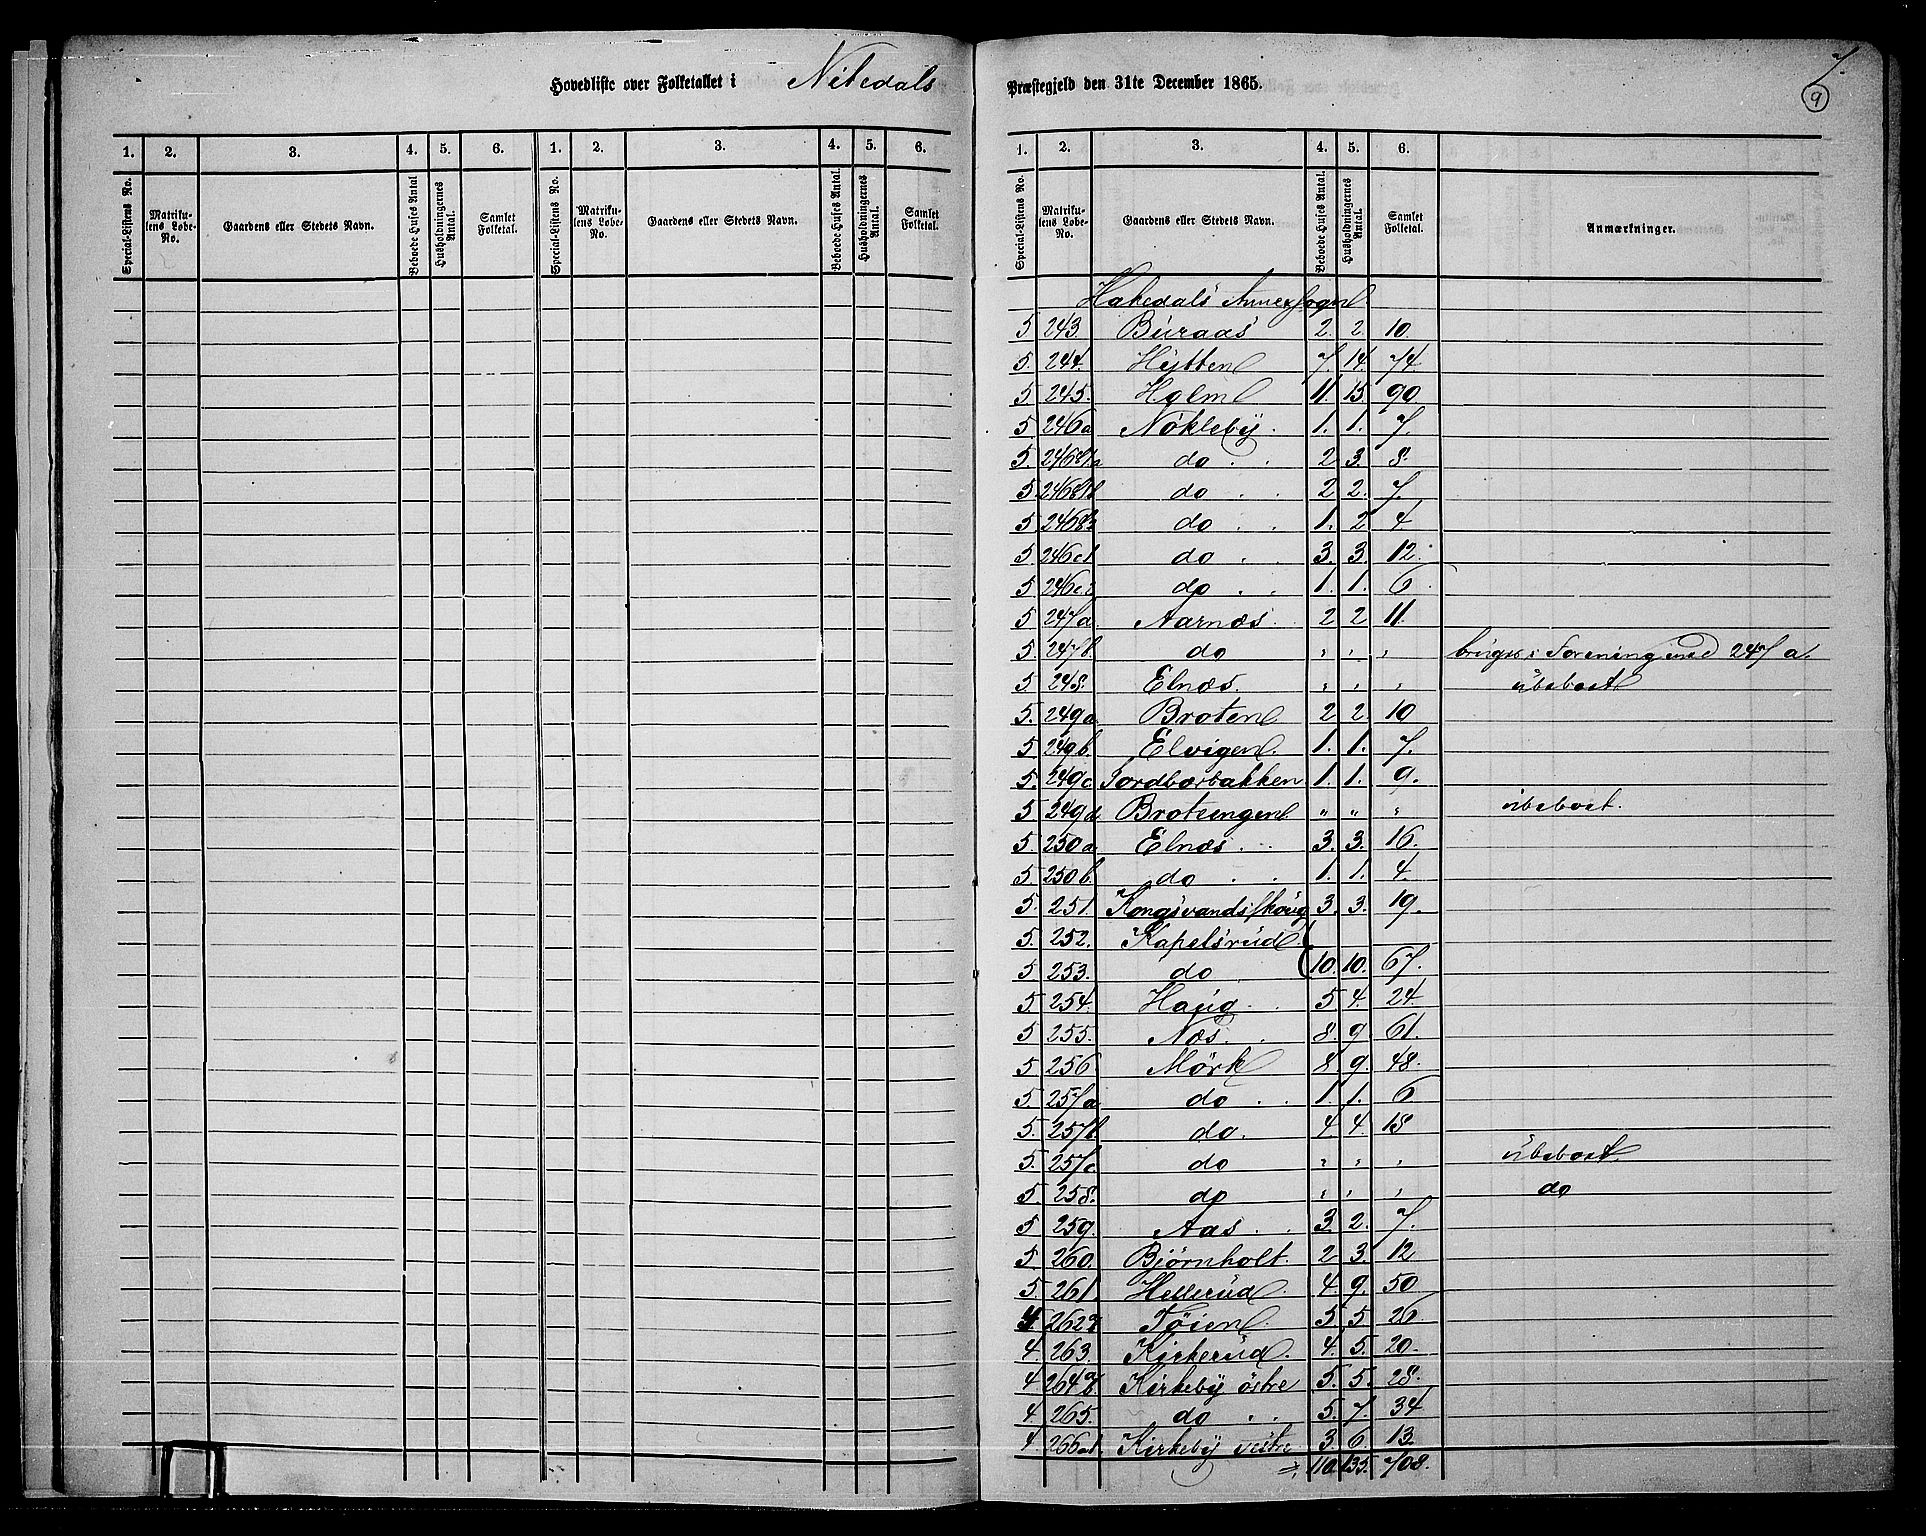 7.
9
Hovedliste over Folketallet i Nitedals Præstegjeld den 31te December 1865.
1. 2. 3. 4. 5. 6. 1. 2. 3. 4. 5. 6.
Special-Listens No. Matrikulens Løbe-No. Gaardens eller Stedets Navn. Beboede Huses Antal Husholdningernes Antal. Samlet Folketal. Special-Listens No. Matrikulens Løbe-No. Gaardens eller Stedets Navn. Beboede Huses Antal. Husholdningernes Antal. Samlet Folketal.
1. 2. 3. 4. 5. 6.
Special-Listens No. Matrikulens Løbe-No. Gaardens eller Stedets Navn. Beboede Huses Antal. Husholdningernes Antal. Samlet Folketal. Anmærkninger.
Hakedals Annexsogn
5 243. Buraas 2. 2. 10.
5. 244. Hytten 7. 14. 74
5 245. Holm 11. 15. 90
5 246a Nökleby. 1. 1. 7.
5. 246 do . . 2 3. 8.
5 246 do . . 2 2. 7.
5 246 do . . 1. 2 4.
5 246c1 do . . 3. 3. 12.
5 246c2 do . . 1. 1. 6
5 247a Aarnæs. 2 2 11.
5. 247b. do " " " bruges i Forening med 247 a.
5 248. Elnæs. " " " ubeboet
5. 249a Broten 2 2. 10
5 249b. Elvigen. 1. 1. 7.
5. 249c. Jordbærbakken 1. 1. 9.
5 249d Brotsengen " " " ubeboet.
5 250a Elnæs . . 3. 3. 16.
5. 250b. do . . 1. 1. 4.
5. 251. Kongsvandsskoug 3. 3. 19.
5. 252. Kapelsrud
5 253. do 10. 10. 67.
5. 254. Haug 5 4. 24.
5 255. Næs. 8. 9. 61.
5 256. Mörk 8. 9. 48.
5. 257a do . . 1. 1. 6
5. 257b. do. 4. 4. 18
5. 257c. do " " " ubeboet.
5. 258. do " " " do
5 259. Aas . . 3 2. 7.
5. 260. Bjørnholt. 2 3. 12
5. 261. Hellerud. 4. 9. 50
4. 262 Töien. 5 5. 26
4. 263. Kirkerud. 4. 5. 20.
4. 264ab Kirkeby östre 5. 5. 28.
4. 265. do . . 5. 7. 34
4. 266a1. Kirkeby vestre 3. 6. 13
= 110. 135. 708.